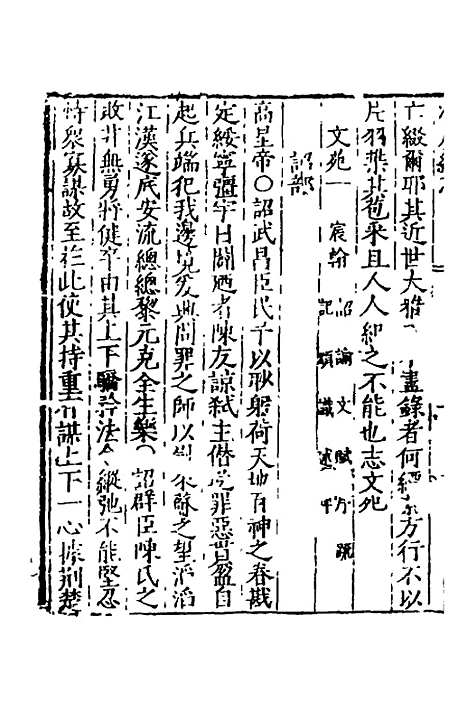 亡綴爾耶其近世大雅 盡錄者何經 方行不以
片羽棄其苞采且人人紀之不能也志文苑
文苑一 宸翰 詔 諭 文 賦 疏
記 頌 議 述
詔部
高皇帝○詔武昌臣民予以眇躬荷天地百神之眷戡
定綏寧疆宇日闢廼者陳友諒弒主僭 罪惡貫盈自
起兵端犯我邊境爰典問罪之師以 來蘇之望滔滔
江漢遂底安流總總黎元克全生樂○ 詔群臣陳氏之
敗井無勇將健卒由其上下驕矜法令縱弛不能堅忍
恃衆寡謀故至於此使其持重有謀上下一心據荆楚